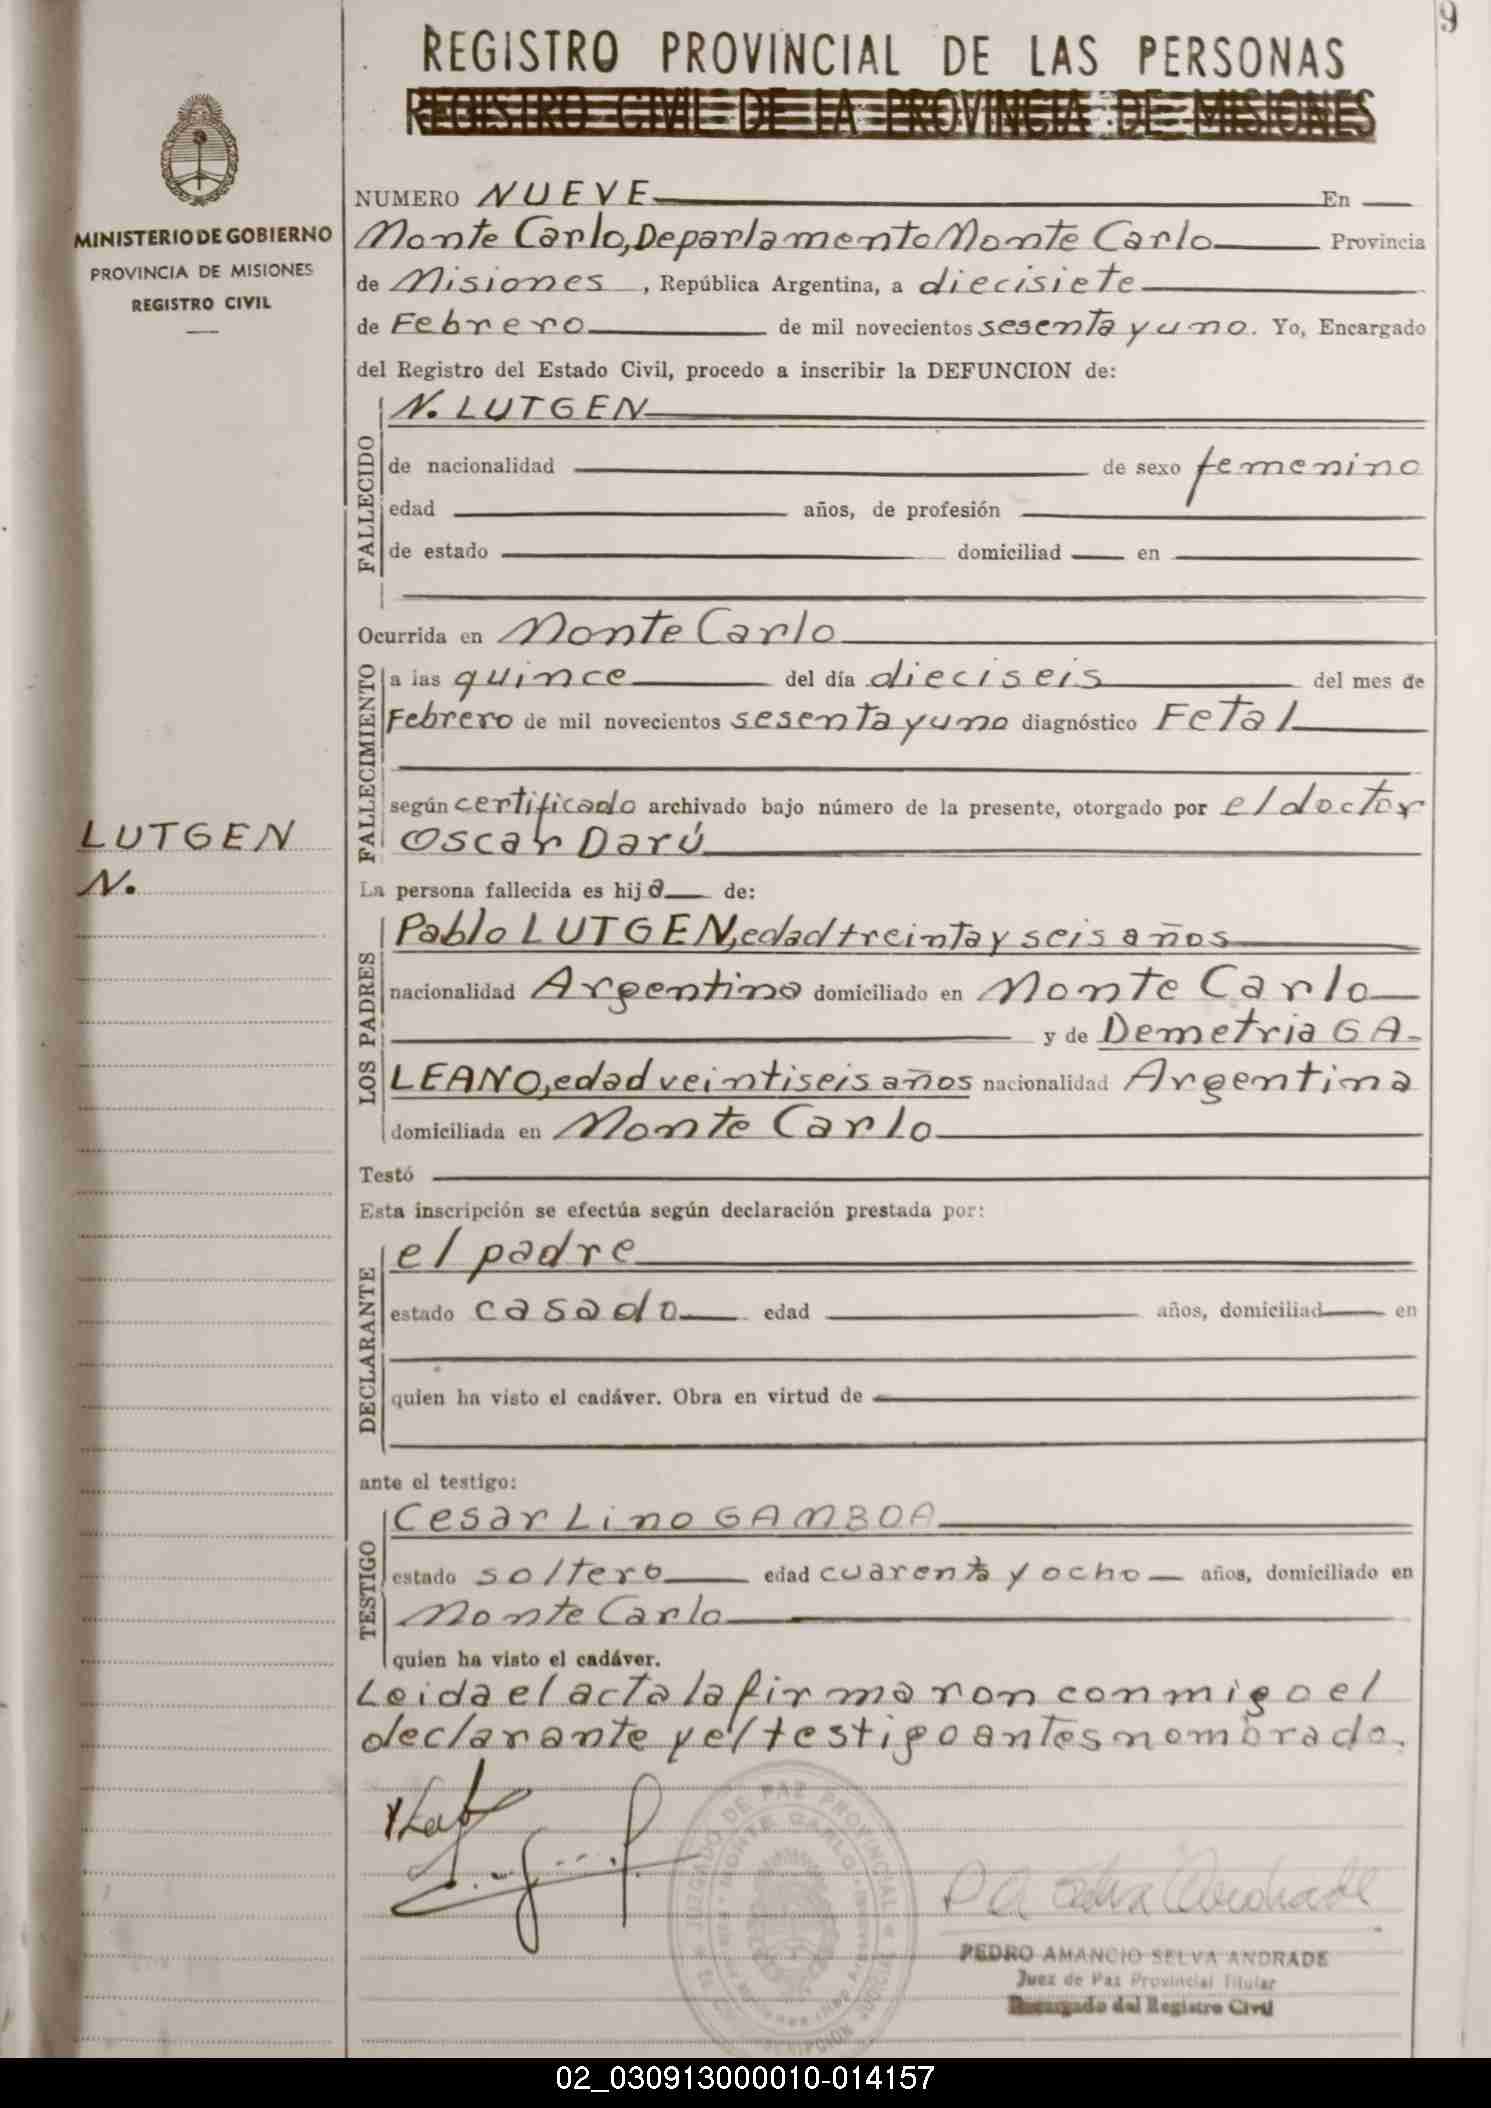 9
REGISTRO PROVINCIAL DE LAS PERSONAS
REGISTRO CIVIL DE LA PROVINCIA DE MISIONES
MINISTERIO DE GOBIERNO
PROVINCIA DE MISIONES
REGISTRO CIVIL
NUMERO NUEVE En
Monte Carlo, Departamento Monte Carlo Provincia
de Misiones, República Argentina, a diecisiete
de Febrero de mil novecientos sesenta y uno. Yo, Encargado
del Registro del Estado Civil, procedo a inscribir la DEFUNCION de:
FALLECIDO
N. LUTGEN
de nacionalidad de sexo femenino
edad años, de profesión
de estado domiciliad en
Ocurrida en Monte Carlo
FALLECIMIENTO
a las quince del día dieciseis del mes de
Febrero de mil novecientos sesenta y uno diagnóstico Fetal
según certificado archivado bajo número de la presente, otorgado por el doctor
Oscar Darú
LUTGEN
N.
La persona fallecida es hija de:
LOS PADRES
Pablo LUTGEN, edad treinta y seis años
nacionalidad Argentino domiciliado en Monte Carlo
y de Demetria GA-
LEANO, edad veintiseis años nacionalidad Argentina
domiciliada en Monte Carlo
Testó
Esta inscripción se efectúa según declaración prestada por:
DECLARANTE
el padre
estado casado edad años, domiciliad en
quien ha visto el cadáver. Obra en virtud de
ante el testigo:
TESTIGO
Cesar Lino GAMBOA
estado soltero edad cuarenta y ocho años, domiciliado en
Monte Carlo
quien ha visto el cadáver.
Leida el acta la firmaron conmigo el
declarante y el testigo antes nombrado.
JUZGADO DE PAZ PROVINCIAL
MONTE CARLO
PEDRO AMANCIO SELVA ANDRADE
Juez de Paz Provincial Titular
Encargado del Registro Civil
02_030913000010-014157